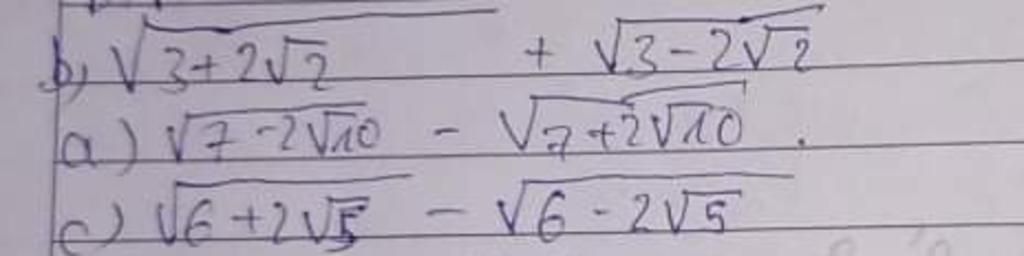 b) √(3+2√2) + √(3-2√2)
a) √(7-2√10) - √(7+2√10) .
c) √(6+2√5) - √(6-2√5)